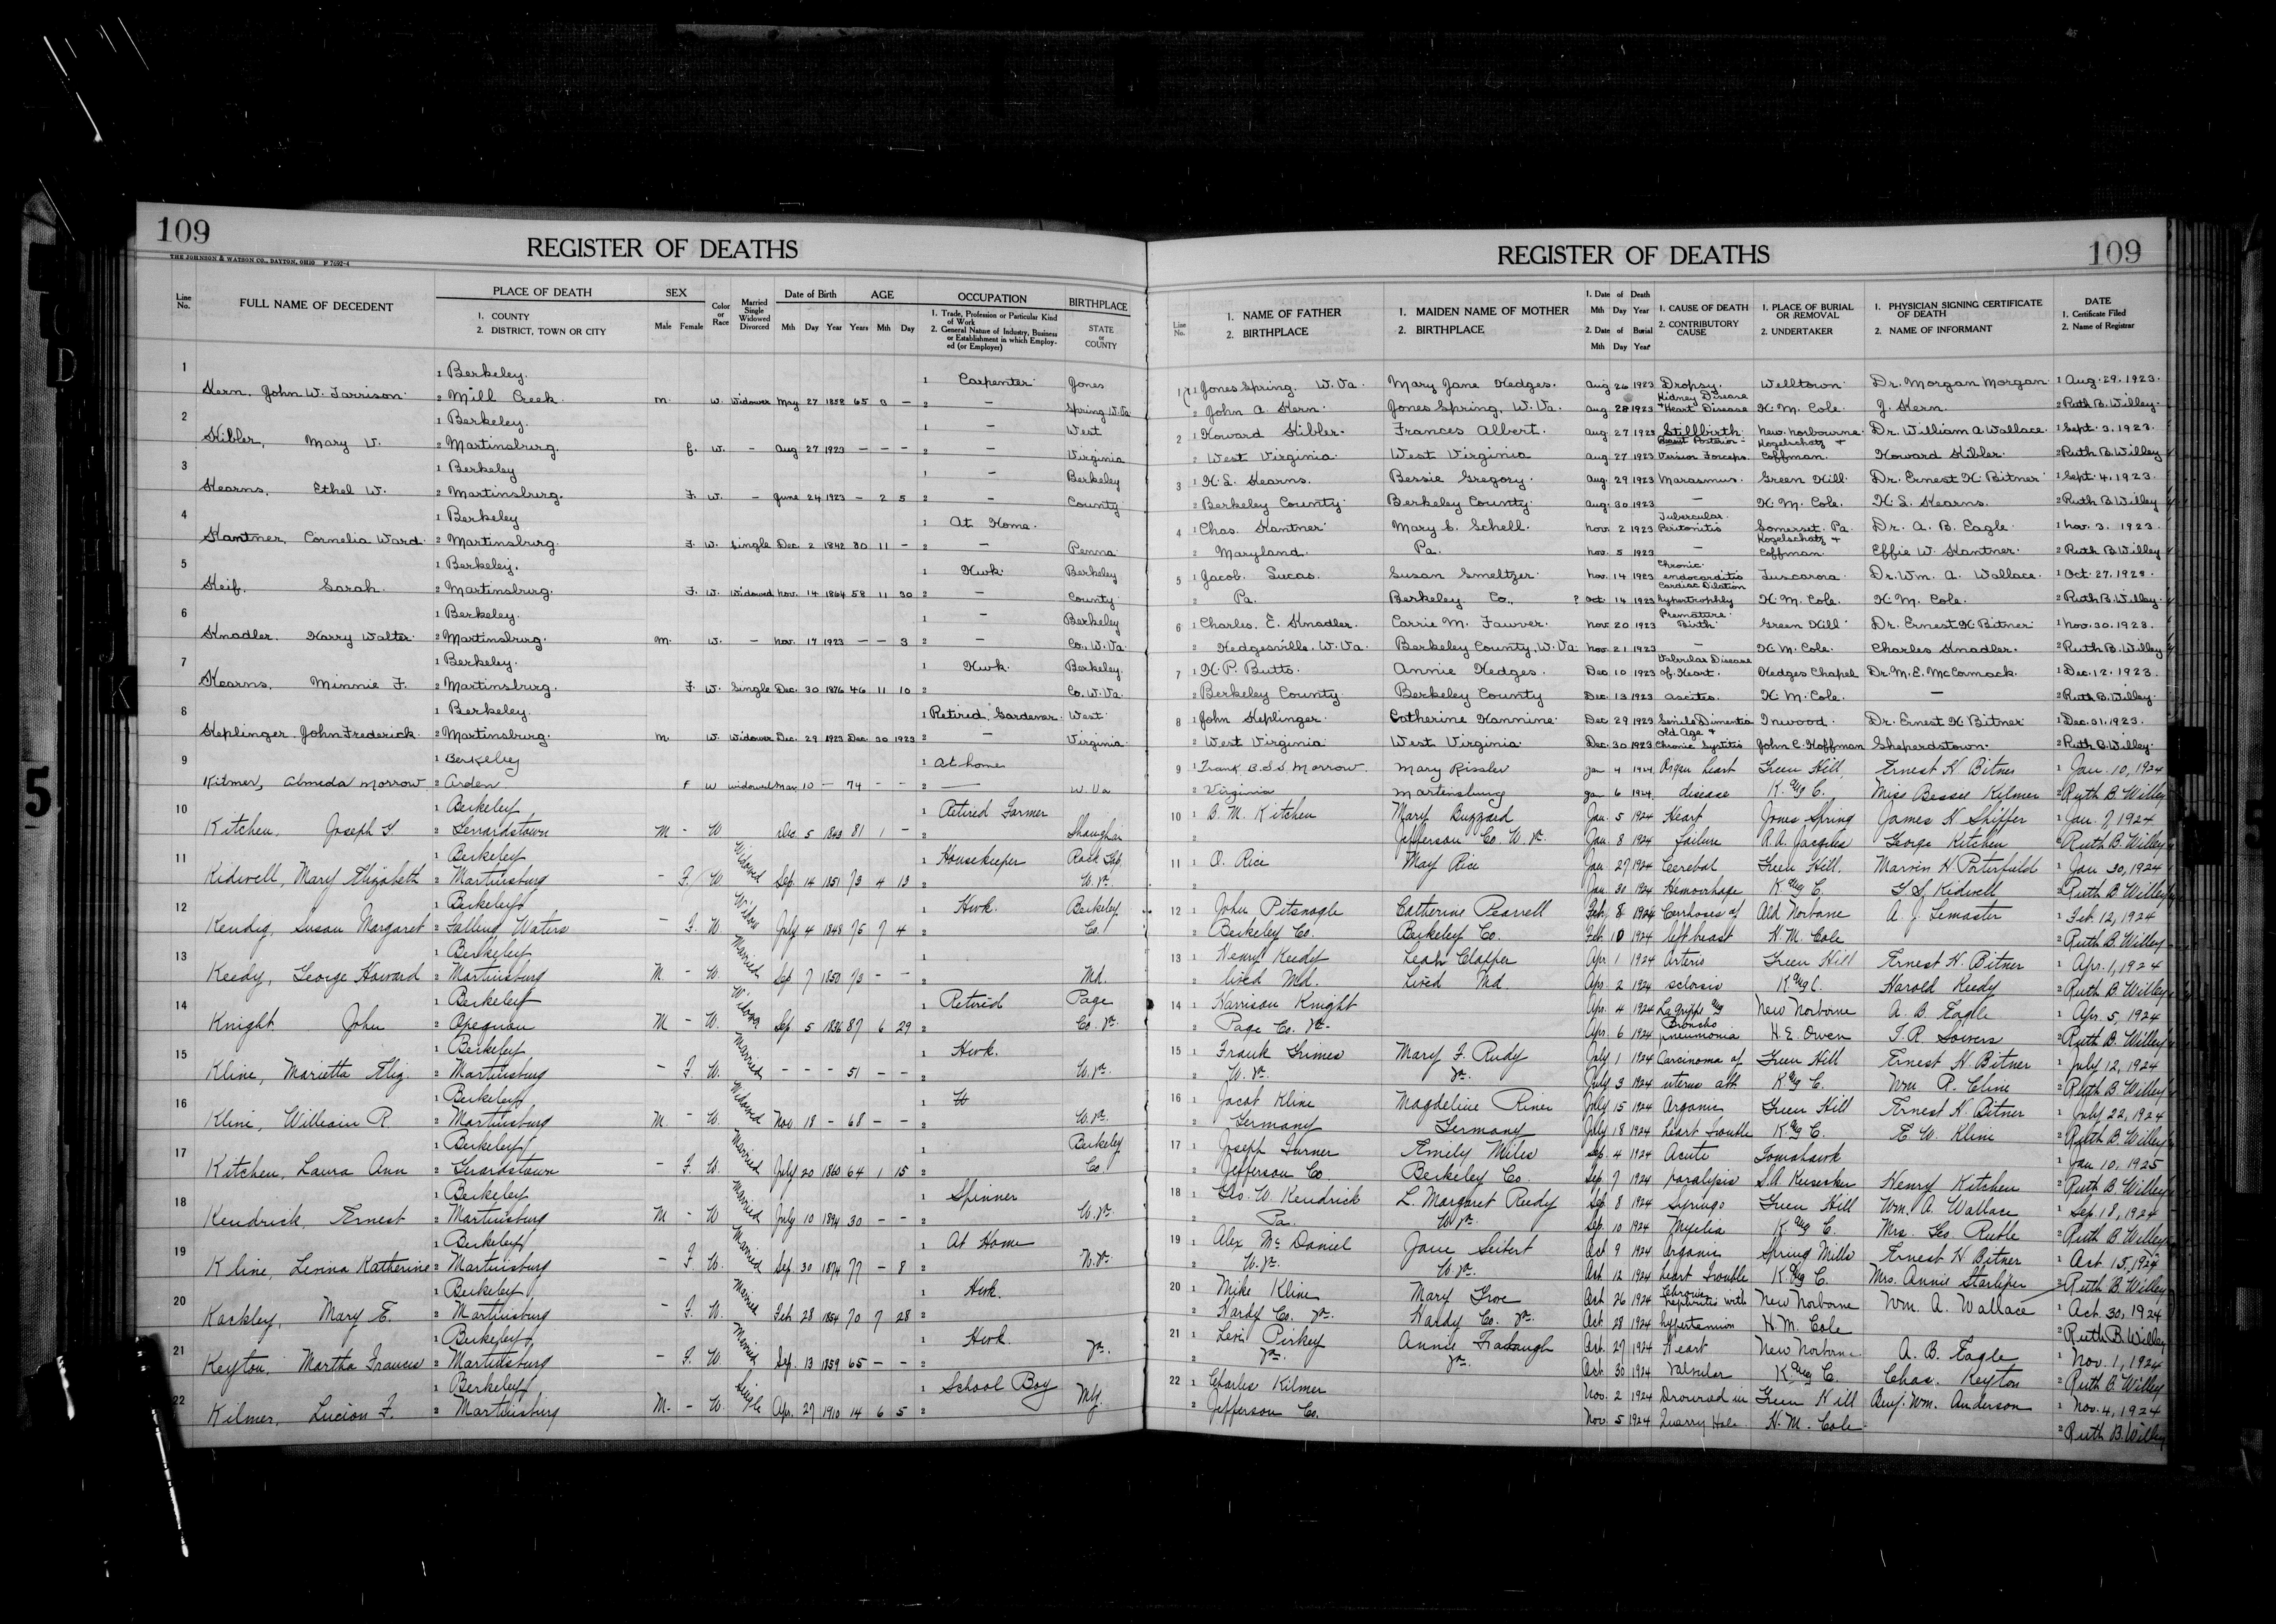 109
THE JOHNSON & WATSON CO., DAYTON, OHIO F 7692-4
REGISTER OF DEATHS
Line No. FULL NAME OF DECEDENT PLACE OF DEATH 1. COUNTY 2. DISTRICT, TOWN OR CITY SEX Male Female Color or Race Married Single Widowed Divorced Date of Birth Mth Day Year AGE Years Mth Day OCCUPATION 1. Trade, Profession or Particular Kind of Work 2. General Nature of Industry, Business or Establishment in which Employed (or Employer) BIRTHPLACE STATE or COUNTY
1 1 Berkeley. 1 Carpenter Jones
Kern, John W. Jarrison. 2 Mill Creek. m. W. Widower May 27 1858 65 3 — 2 — Spring W.Va
2 1 Berkeley. 1 — West
Kibler, Mary V. 2 Martinsburg. f. W. — Aug 27 1923 — — — 2 — Virginia
3 1 Berkeley 1 — Berkeley
Kearns, Ethel W. 2 Martinsburg. F. W. — June 24 1923 — 2 5 2 — County
4 1 Berkeley 1 At Home.
Kantner, Cornelia Ward. 2 Martinsburg. F. W. Single Dec. 2 1842 80 11 — 2 — Penna
5 1 Berkeley. 1 Hwk. Berkeley
Keif, Sarah. 2 Martinsburg. F. W. Widowed Nov. 14 1864 58 11 30 2 — County
6 1 Berkeley. 1 Berkeley
Knadler. Harry Walter 2 Martinsburg. m. W. — Nov. 17 1923 — — 3 2 — Co., W.Va.
7 1 Berkeley. 1 Hwk. Berkeley
Kearns, Minnie F. 2 Martinsburg. F. W. Single Dec. 30 1876 46 11 10 2 Co. W.Va.
8 1 Berkeley. 1 Retired, Gardener. West
Keplinger, John Frederick. 2 Martinsburg. m. W. Widower Dec. 29 1923 Dec. 30 1923 2 — Virginia.
9 1 Berkeley 1 At home
Kilmer, Almeda Morrow 2 Arden F W widowed Mar. 10 — 74 — — 2 — W. Va
10 1 Berkeley 1 Retired Farmer
Kitchen, Joseph G 2 Gerrardstown M - W Dec. 5 81 1 — 2 Shanghai
11 1 Berkeley 1 Housekeeper Rock Gap
Kidwell, Mary Elizabeth 2 Martinsburg - F. W. Widowed Sep. 14 1851 73 4 13 2 W. Va.
12 1 Berkeley 1 Hwk. Berkeley
Kendig, Susan Margaret 2 Falling Waters - F. W. Widow July 4 1848 75 7 4 2 Co.
13 1 Berkeley 1
Keedy, George Howard 2 Martinsburg M. - W. Married Sep 7 1850 73 — — 2 Md.
14 1 Berkeley 1 Retired Page
Knight John 2 Opequon M - W. Widower Sep. 5 1836 87 6 29 2 Co. Va.
15 1 Berkeley 1 Hwk.
Kline, Marietta Eliz. 2 Martinsburg - F. W. Married - - - 51 — — 2 W. Va.
16 1 Berkeley 1
Kline, William R. 2 Martinsburg M - W. Widowed Nov. 18 - 68 — — 2 W. Va.
17 1 Berkeley 1 Berkeley
Kitchen, Laura Ann 2 Gerardstown - F. W. Married July 20 1860 64 1 15 2 Co.
18 1 Berkeley 1 Spinner
Kendrick, Ernest 2 Martinsburg M - W Married July 10 1894 30 — — 2 W. Va.
19 1 Berkeley 1 At Home
Kline, Levina Katherine 2 Martinsburg - F. W. Married Sep. 30 1874 77 — 8 2 W. Va.
20 1 Berkeley 1 Hwk.
Kackley, Mary E. 2 Martinsburg - F. W. Married Feb. 28 1854 70 7 28 2
21 1 Berkeley 1 Hwk.
Keyton, Martha Frances 2 Martinsburg - F. W. Married Sep. 13 1859 65 — — 2 Va.
22 1 Berkeley 1 School Boy
Kilmer, Lucion F. 2 Martinsburg M. - W. Single Apr. 27 1910 14 6 5 2 Md.
REGISTER OF DEATHS
109
Line No. 1. NAME OF FATHER 2. BIRTHPLACE 1. MAIDEN NAME OF MOTHER 2. BIRTHPLACE 1. Date of Death Mth Day Year 2. Date of Burial Mth Day Year 1. CAUSE OF DEATH 2. CONTRIBUTORY CAUSE 1. PLACE OF BURIAL OR REMOVAL 2. UNDERTAKER 1. PHYSICIAN SIGNING CERTIFICATE OF DEATH 2. NAME OF INFORMANT DATE 1. Certificate Filed 2. Name of Registrar
1 1 Jones Spring, W. Va. Mary Jane Hedges. Aug 26 1923 Dropsy. Welltown Dr. Morgan Morgan 1 Aug. 29, 1923.
2 John A. Kern. Jones Spring, W. Va. Aug 28 1923 Kidney Disease + Heart Disease H. M. Cole. J. Kern. 2 Ruth B. Willey.
2 1 Howard Kibler. Frances Albert. Aug 27 1923 Stillbirth New Norbourne. Dr. William A. Wallace. 1 Sept. 3, 1923.
2 West Virginia. West Virginia Aug 27 1923 Posterior - Version Forceps. Kogelschatz + Coffman. Howard Kibler. 2 Ruth B. Willey
3 1 H. S. Kearns. Bessie Gregory. Aug. 29 1923 Marasmus. Green Hill. Dr. Ernest H. Bitner 1 Sept. 4, 1923.
2 Berkeley County. Berkeley County. Aug. 30 1923 — H. M. Cole. H. S. Kearns. 2 Ruth B. Willey
4 1 Chas. Kantner. Mary E. Schell. Nov. 2 1923 Tubercular Peritonitis Somerset, Pa. Dr. A. B. Eagle 1 Nov. 3. 1923.
2 Maryland. Pa. Nov. 5 1923 — Kogelschatz + Coffman. Effie W. Kantner. 2 Ruth B. Willey
5 1 Jacob. Lucas. Susan Smeltzer. Nov. 14 1923 Chronic endocarditis Tuscarora. Dr. Wm. A. Wallace. 1 Oct. 27, 1923.
2 Pa. Berkeley Co., ? Oct. 14 1923 Cardiac Dilation hypertrophy H. M. Cole. H. M. Cole. 2 Ruth B. Willey.
6 1 Charles. E. Knadler. Carrie M. Fauver. Nov. 20 1923 Premature Birth Green Hill Dr. Ernest H. Bitner 1 Nov. 30. 1923.
2 Hedgesville, W. Va. Berkeley County, W. Va. Nov. 21 1923 — H. M. Cole. Charles Knadler. 2 Ruth B. Willey
7 1 H. P. Butts. Annie Hedges. Dec 10 1923 Valvular Disease of Heart. Hedges Chapel Dr. M. E. McComack. 1 Dec. 12. 1923.
2 Berkeley County. Berkeley County Dec. 13 1923 Ascites. H. M. Cole. — 2 Ruth B. Willey.
8 1 John Keplinger. Catherine Hannine. Dec 29 1923 Senile Dimentia Inwood. Dr. Ernest H. Bitner 1 Dec. 31. 1923.
2 West Virginia West Virginia. Dec. 30 1923 Old Age + Chronic Cystitis John C. Hoffman Sheperdstown. 2 Ruth B. Willey.
9 1 Frank B. S. S. Morrow. Mary Rissler Jan 4 1924 Organ heart Green Hill, Ernest H Bitner 1 Jan. 10, 1924
2 Virginia Martinsburg Jan 6 1924 disease K. & C. Miss Bessie Kilmer 2 Ruth B. Willey
10 1 B. M. Kitchen Mary Buzzard Jan. 5 1924 Heart Jones Spring James H Shiffer 1 Jan. 7, 1924
2 Jefferson Co. W. Va. Jan. 8 1924 failure R. A. Jacques George Kitchen 2 Ruth B. Willey
11 1 O. Rice May Rice Jan 27 1924 Cerebal Green Hill. Marvin H Porterfield 1 Jan 30, 1924
2 Jan. 30 1924 Hemorrhage K. & C. Kidwell 2 Ruth B. Willey
12 1 John Pitsnogle Catherine Pearrell Feb. 8 1924 Cerrhoses of Old Norbone A. J. Lemaster 1 Feb. 12, 1924
2 Berkeley Co. Berkeley Co. Feb. 10 1924 left breast H. M. Cole 2 Ruth B. Willey
13 1 Henry Keedy Leah Clapper Apr. 1 1924 Arterio Green Hill Ernest H. Bitner 1 Apr. 1, 1924
2 lived Md. Lived Md. Apr. 2 1924 sclorsis K & C. Harold Keedy 2 Ruth B. Willey
14 1 Harrison Knight Apr. 4 1924 La Grippe & New Norborne A. B. Eagle 1 Apr. 5, 1924
2 Page Co. Va. Apr. 6 1924 Broncho pneumonia H. E. Owen T. R. Sowers 2 Ruth B. Willey
15 1 Frank Grimes Mary F. Rudy July 1 1924 Carcinoma of Green Hill Ernest H. Bitner 1 July 12, 1924
2 W. Va. Va. July 3 1924 uterus K & C. Wm. R. Cline 2 Ruth B. Willey
16 1 Jacob Kline Magdeline Riner July 15 1924 Organic Green Hill Ernest H. Bitner 1 July 22, 1924
2 Germany Germany July 18 1924 heart trouble K. & C. E. W. Kline 2 Ruth B. Willey
17 1 Joseph Turner Emily Miles Sep. 4 1924 Acute Tomahawk 1 Jan 10, 1925
2 Jefferson Co. Berkeley Co. Sep. 7 1924 paralysis S. A. Keesecker Henry Kitchen 2 Ruth B. Willey
18 1 Geo. W. Kendrick L. Margaret Reedy Sep. 8 1924 Syringo Green Hill Wm. A. Wallace 1 Sep. 18, 1924
2 Pa. W. Va. Sep. 10 1924 Myelia K. & C. Mrs. Geo. Ruble 2 Ruth B. Willey
19 1 Alex McDaniel Jane Seibert Oct 9 1924 Organic Spring Mills Ernest H Bitner 1 Oct. 15, 1924
2 W. Va. W. Va. Oct. 12 1924 heart trouble K. & C. Mrs. Annie Starliper 2 Ruth B. Willey
20 1 Mike Kline Mary Grove Oct 26 1924 Chronic nephritis with New Norborne Wm. A. Wallace 1 Oct. 30, 1924
2 Hardy Co. Va. Hardy Co. Va. Oct. 28 1924 hypertension H. M. Cole 2 Ruth B. Willey
21 1 Levi Pirkey Annie Oct. 27 1924 Heart New Norborne A. B. Eagle 1 Nov. 1, 1924
2 Va. Va. Oct. 30 1924 Valvuler K. & C. Chas. Keyton 2 Ruth B. Willey
22 1 Charles Kilmer Nov. 2 1924 Drowned in Green Hill Benj. Wm. Anderson 1 Nov. 4, 1924
2 Jefferson Co. Nov. 5 1924 Quarry Hole H. M. Cole 2 Ruth B. Willey